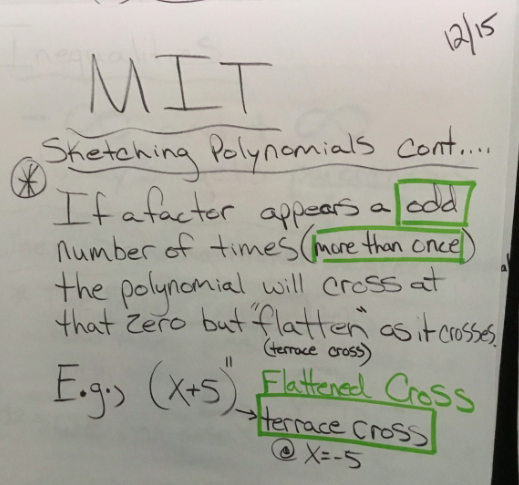 12/15
MIT
Sketching Polynomials cont....
* If a factor appears a odd
number of times (more than once)
the polynomial will cross at
that zero but "flatten" as it crosses.
(terrace cross)
E.g., (x+5)¹¹ Flattened Cross
→ terrace cross
@ x=-5